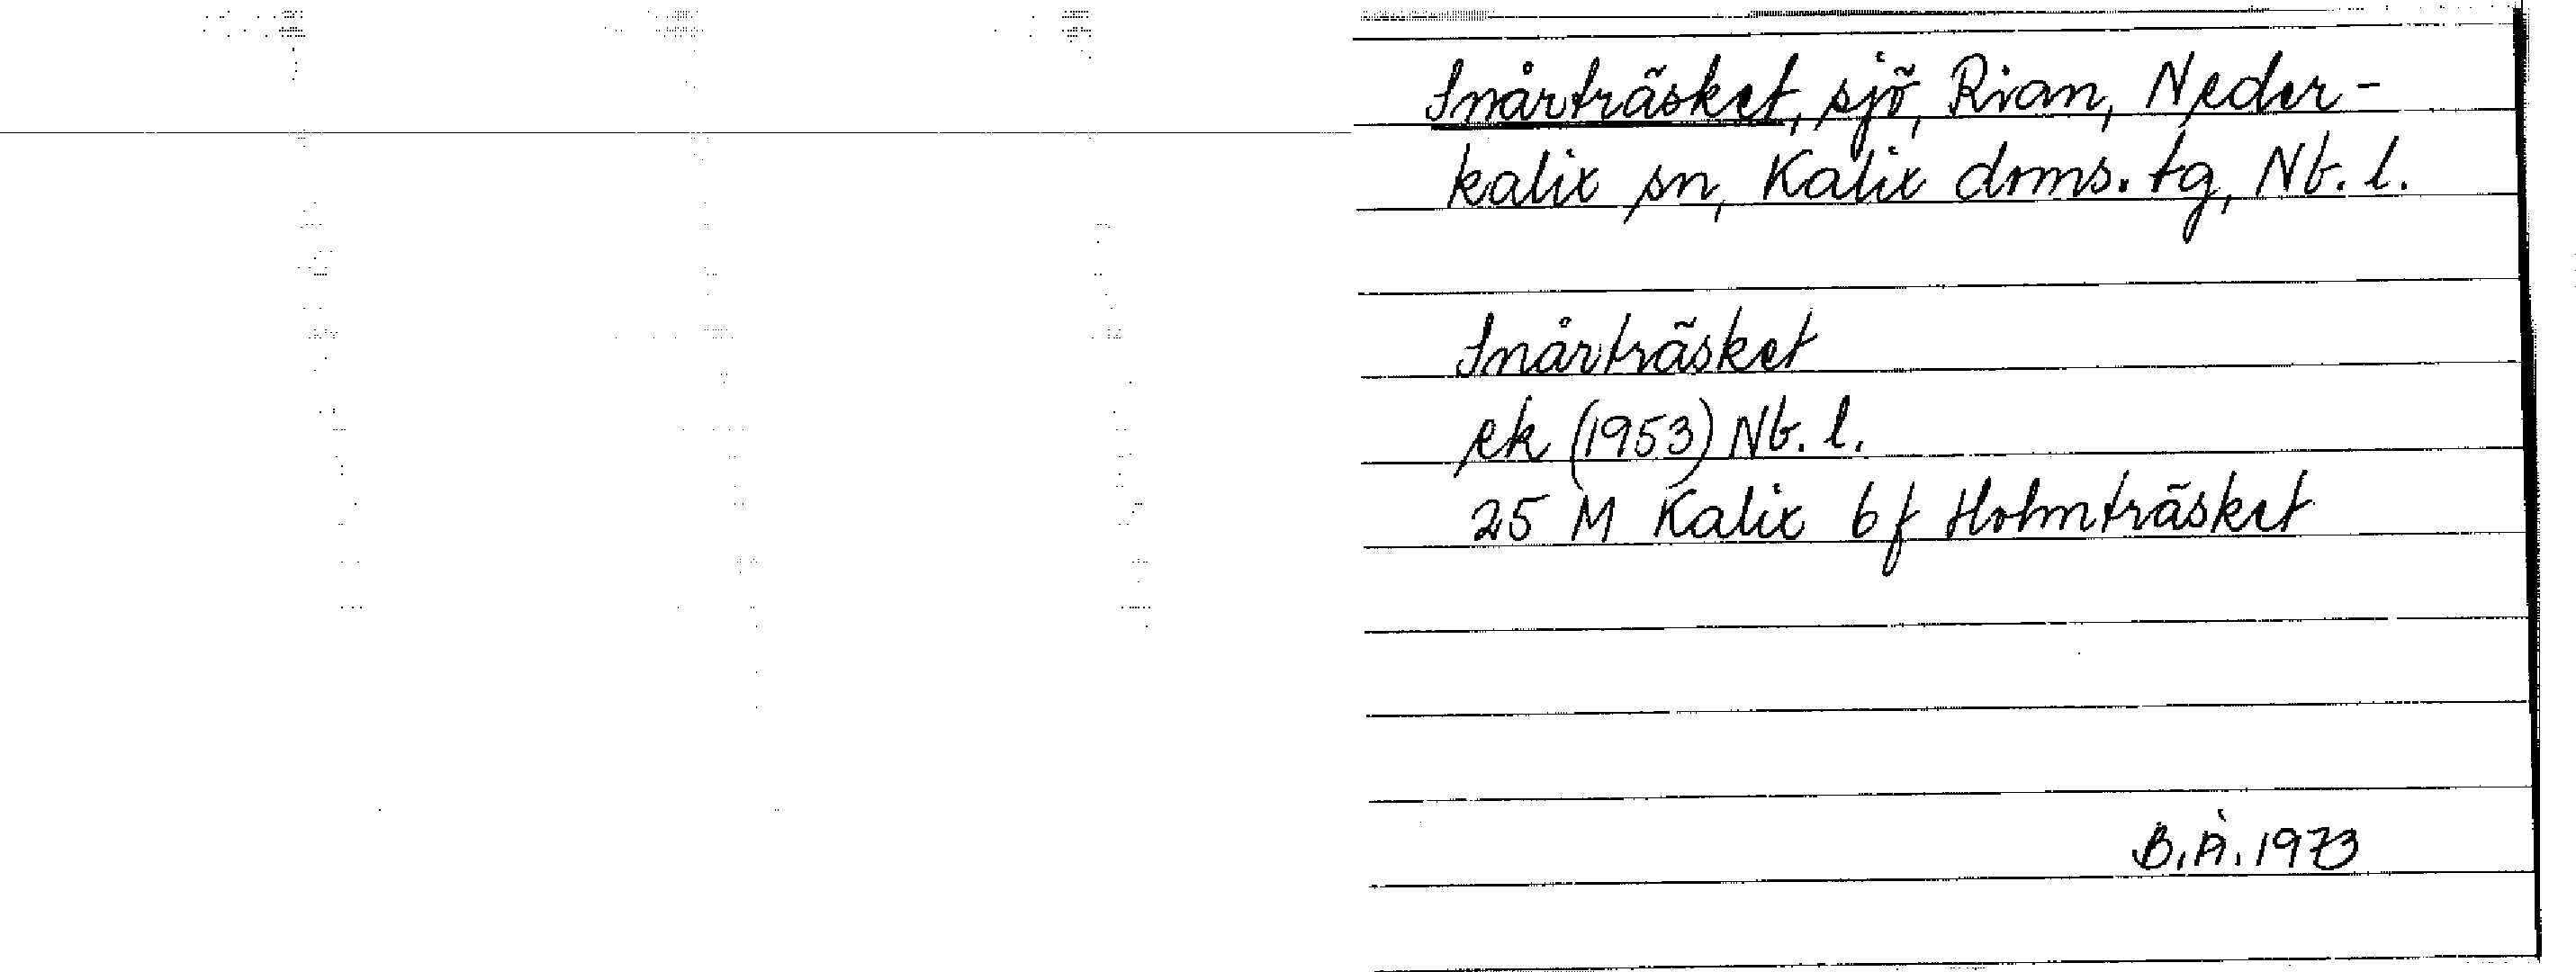 Snårträsket, sjö, Rian, Neder-
kalix sn, Kalix doms. tg, Nb. l.
Snårträsket
ek (1953) Nb. l.
25 M Kalix bf Holmträsket
B.Å. 1973